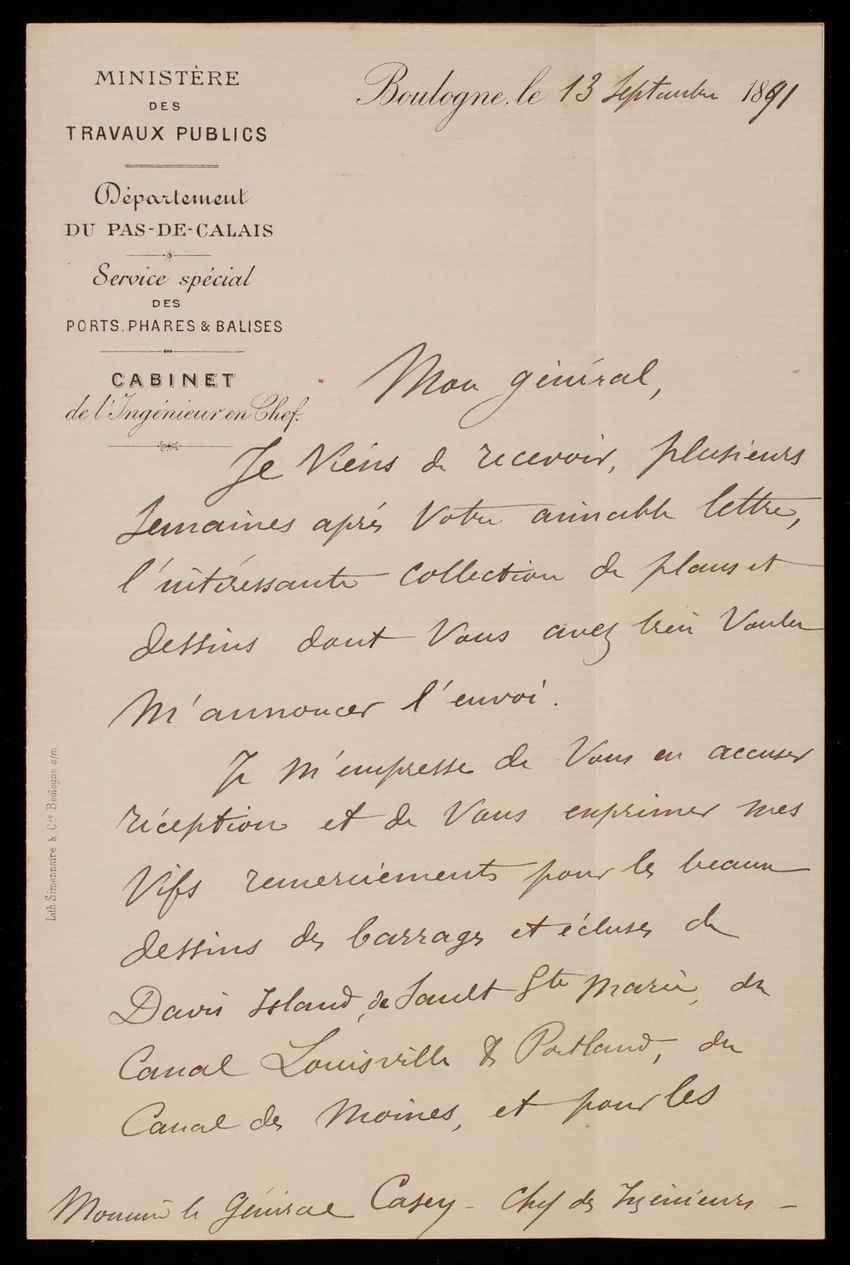 MINISTÈRE
DES
TRAVAUX PUBLICS
Département
DU PAS-DE-CALAIS
Service spécial
DES
PORTS, PHARES & BALISES
CABINET
de l'Ingénieur en Chef.
Boulogne, le 13 Septembre 1891
Mon général,
Je viens de recevoir, plusieurs
semaines après votre aimable lettre,
l'intéressante collection de plans et
dessins dont vous avez bien voulu
m'annoncer l'envoi.
Je m'empresse de vous en accuser
réception et de vous exprimer mes
vifs remerciements pour les beaux
dessins des barrages et écluses de
Davis Island, de Sault Ste Marie, du
Canal Louisville & Portland, du
Canal des Moines, et pour les
Monsieur le Général Casey - Chef des Ingénieurs -
Lith. Simonnaire & Cie Boulogne s/m.